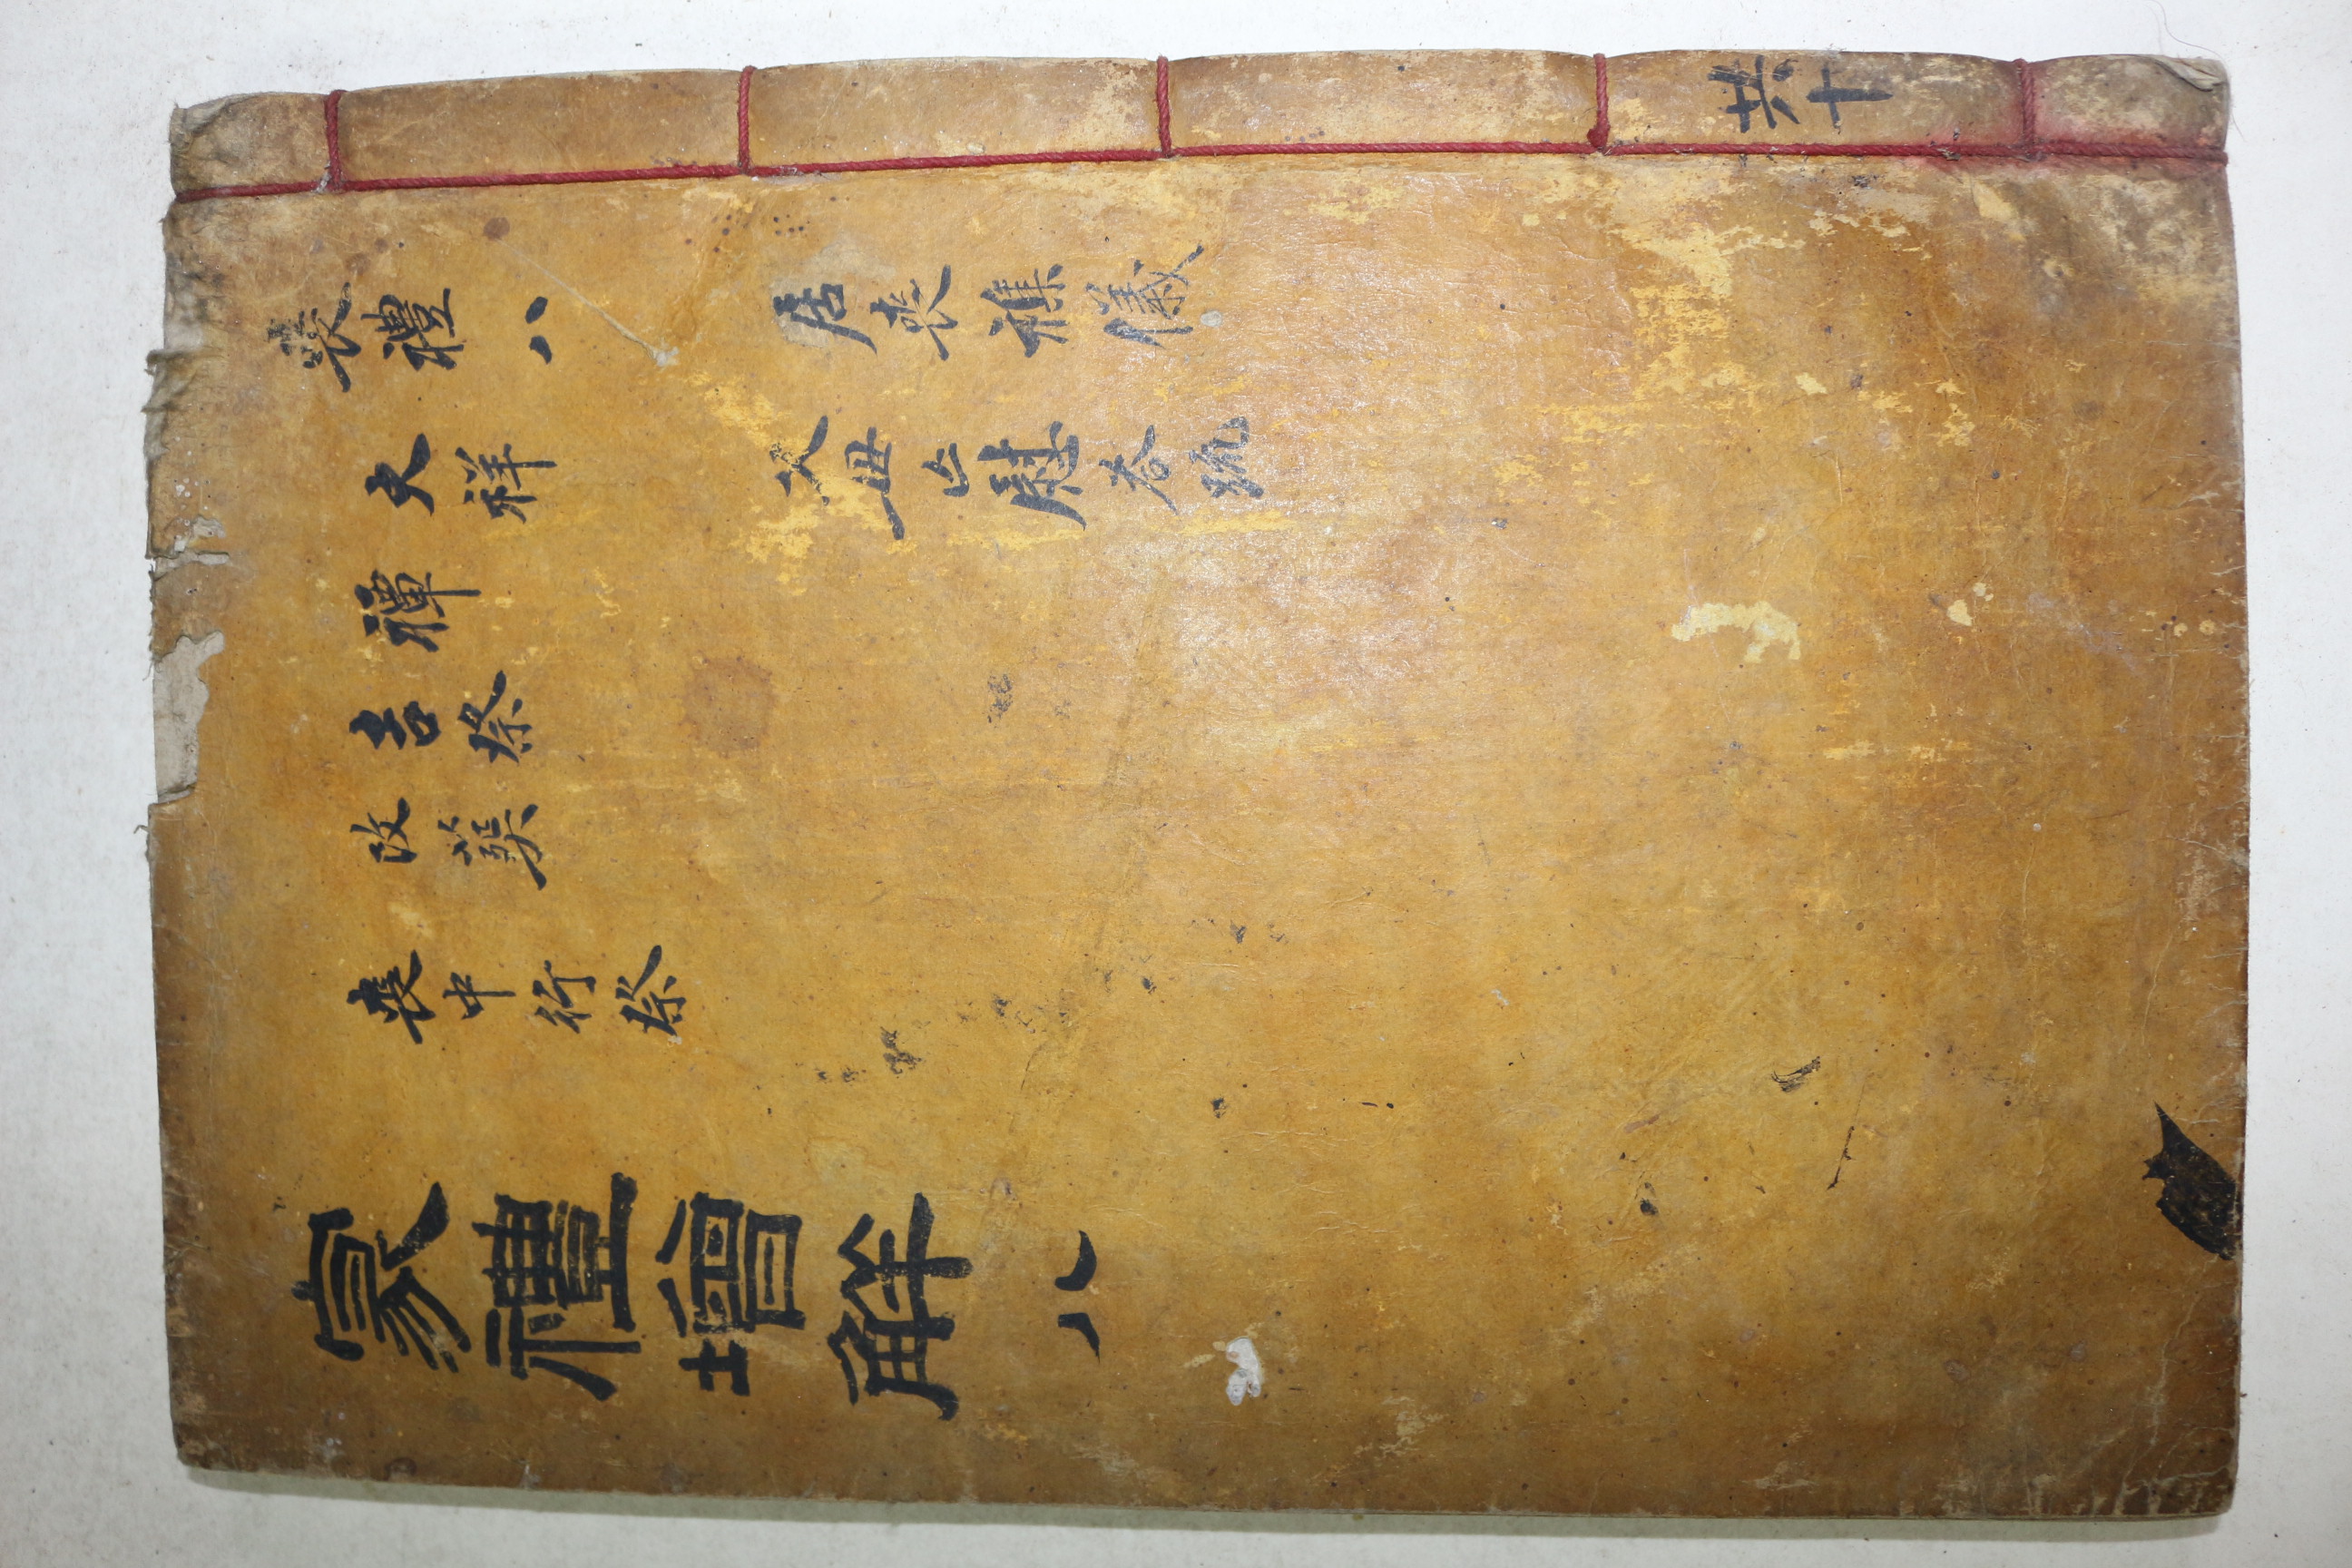 喪禮 八
大祥
禫
吉祭
改葬
喪中行祭
居喪襍儀
父母亡慰荅疏
家禮增解 八
共十